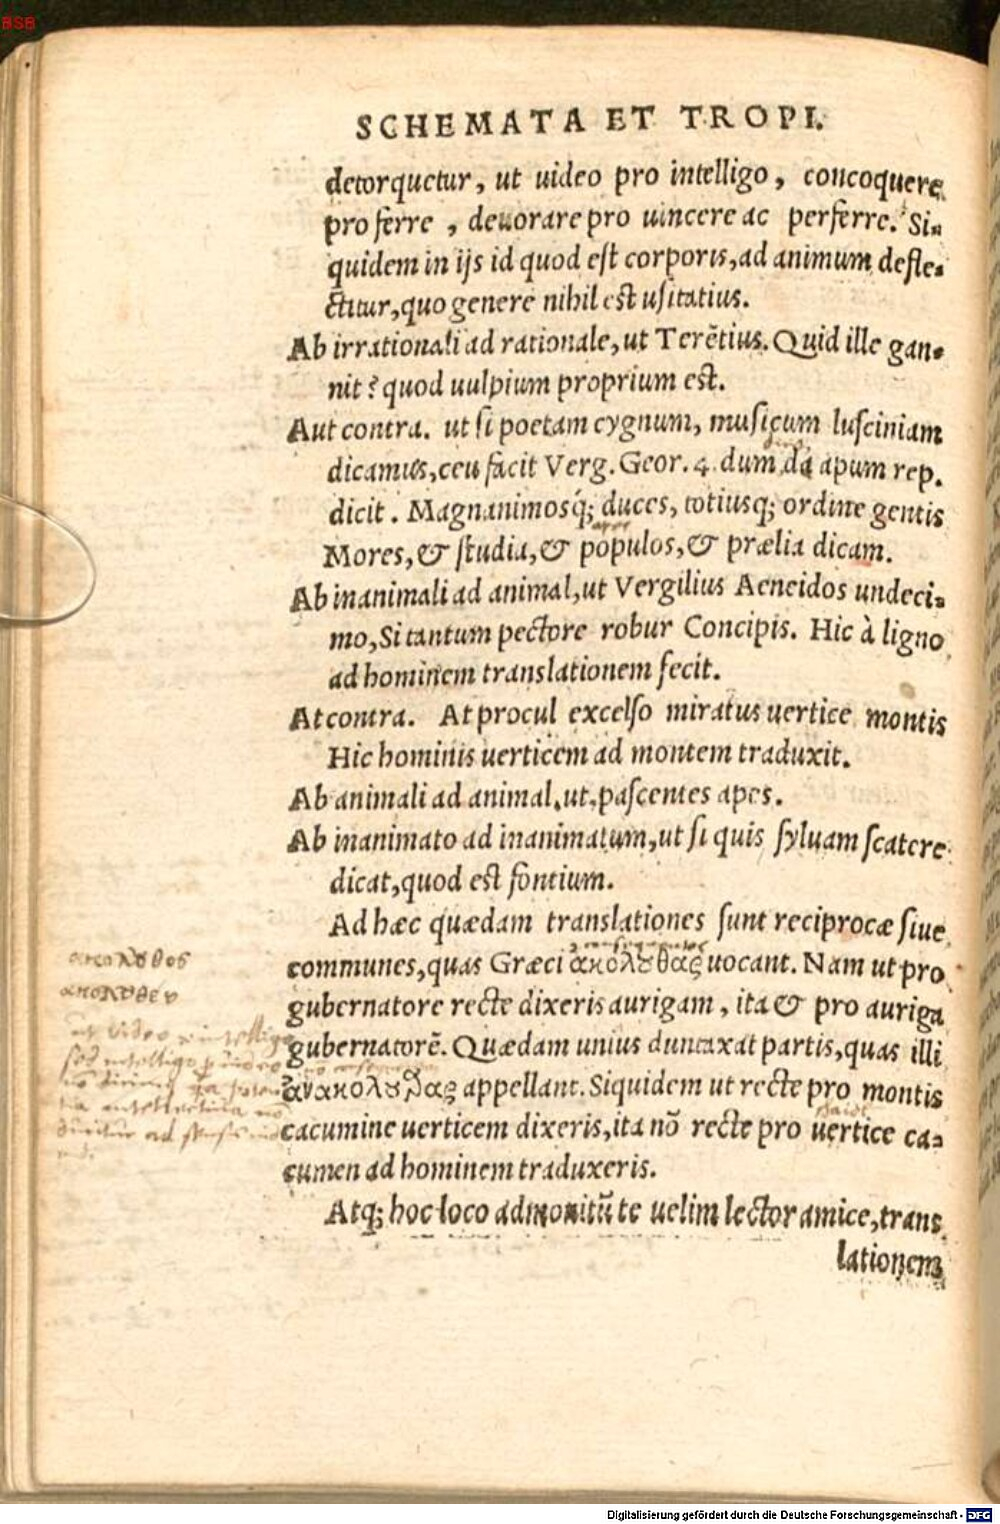 BSB
SCHEMATA ET TROPI.
detorquetur, ut uideo pro intelligo, concoquere
pro ferre, deuorare pro uincere ac perferre. Si=
quidem in ijs id quod est corporis, ad animum defle=
ctitur, quo genere nihil est usitatius.
Ab irrationali ad rationale, ut Terẽtius. Quid ille gan=
nit? quod uulpium proprium est.
Aut contra. ut si poetam cygnum, musicum lusciniam
dicamus, ceu facit Verg. Geor. 4. dum da apum rep.
dicit. Magnanimosq́; duces, totiusq; ordine gentis
Mores, & studia, & populos, & prælia dicam.
Ab inanimali ad animal, ut Vergilius Aeneidos undeci=
mo, Si tantum pectore robur Concipis. Hic à ligno
ad hominem translationem fecit.
At contra. At procul excelso miratus uertice montis
Hic hominis uerticem ad montem traduxit.
Ab animali ad animal, ut, pascentes apes.
Ab inanimato ad inanimatum, ut si quis syluam scatere
dicat, quod est fontium.
Ad hæc quædam translationes sunt reciprocæ siue
communes, quas Græci ἀκολούθας uocant. Nam ut pro
gubernatore recte dixeris aurigam, ita & pro auriga
gubernatorẽ. Quædam unius duntaxat partis, quas illi
ἀνακολούθας appellant. Siquidem ut recte pro montis
cacumine uerticem dixeris, ita nõ recte pro uertice ca=
cumen ad hominem traduxeris.
Atq; hoc loco admonitũ te uelim lector amice, trans
lationem
ακολουθος
ακολουθεν
ut video intelligo
sed intelligo
Digitalisierung gefördert durch die Deutsche Forschungsgemeinschaft - DFG